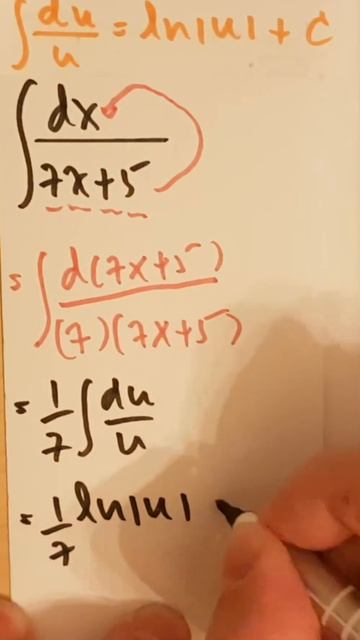 ∫ du/u = ln|u| + C
∫ dx/7x+5
= ∫ d(7x+5)/(7)(7x+5)
= 1/7 ∫ du/u
= 1/7 ln|u|